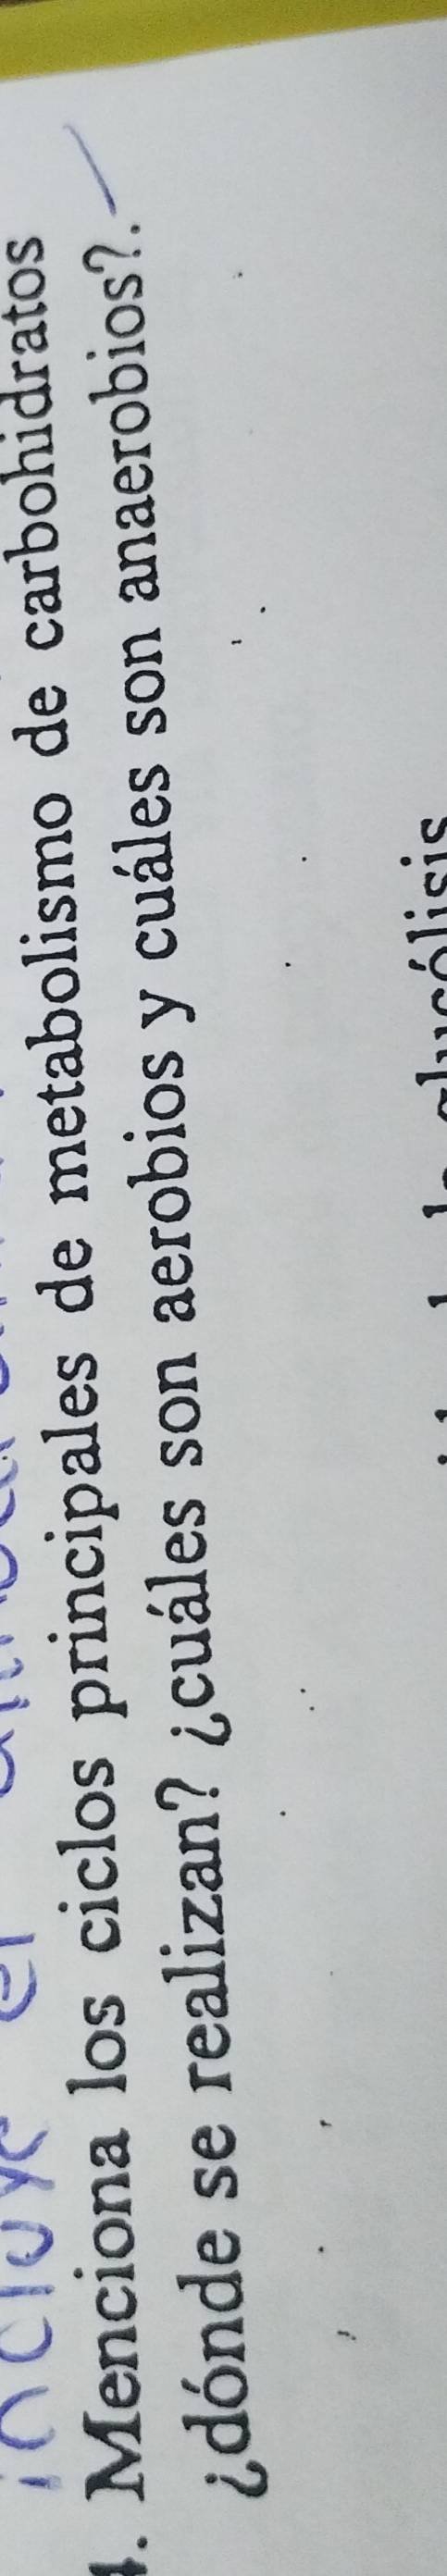 incluye el
4. Menciona los ciclos principales de metabolismo de carbohidratos
¿dónde se realizan? ¿cuáles son aerobios y cuáles son anaerobios?.
glucólisis